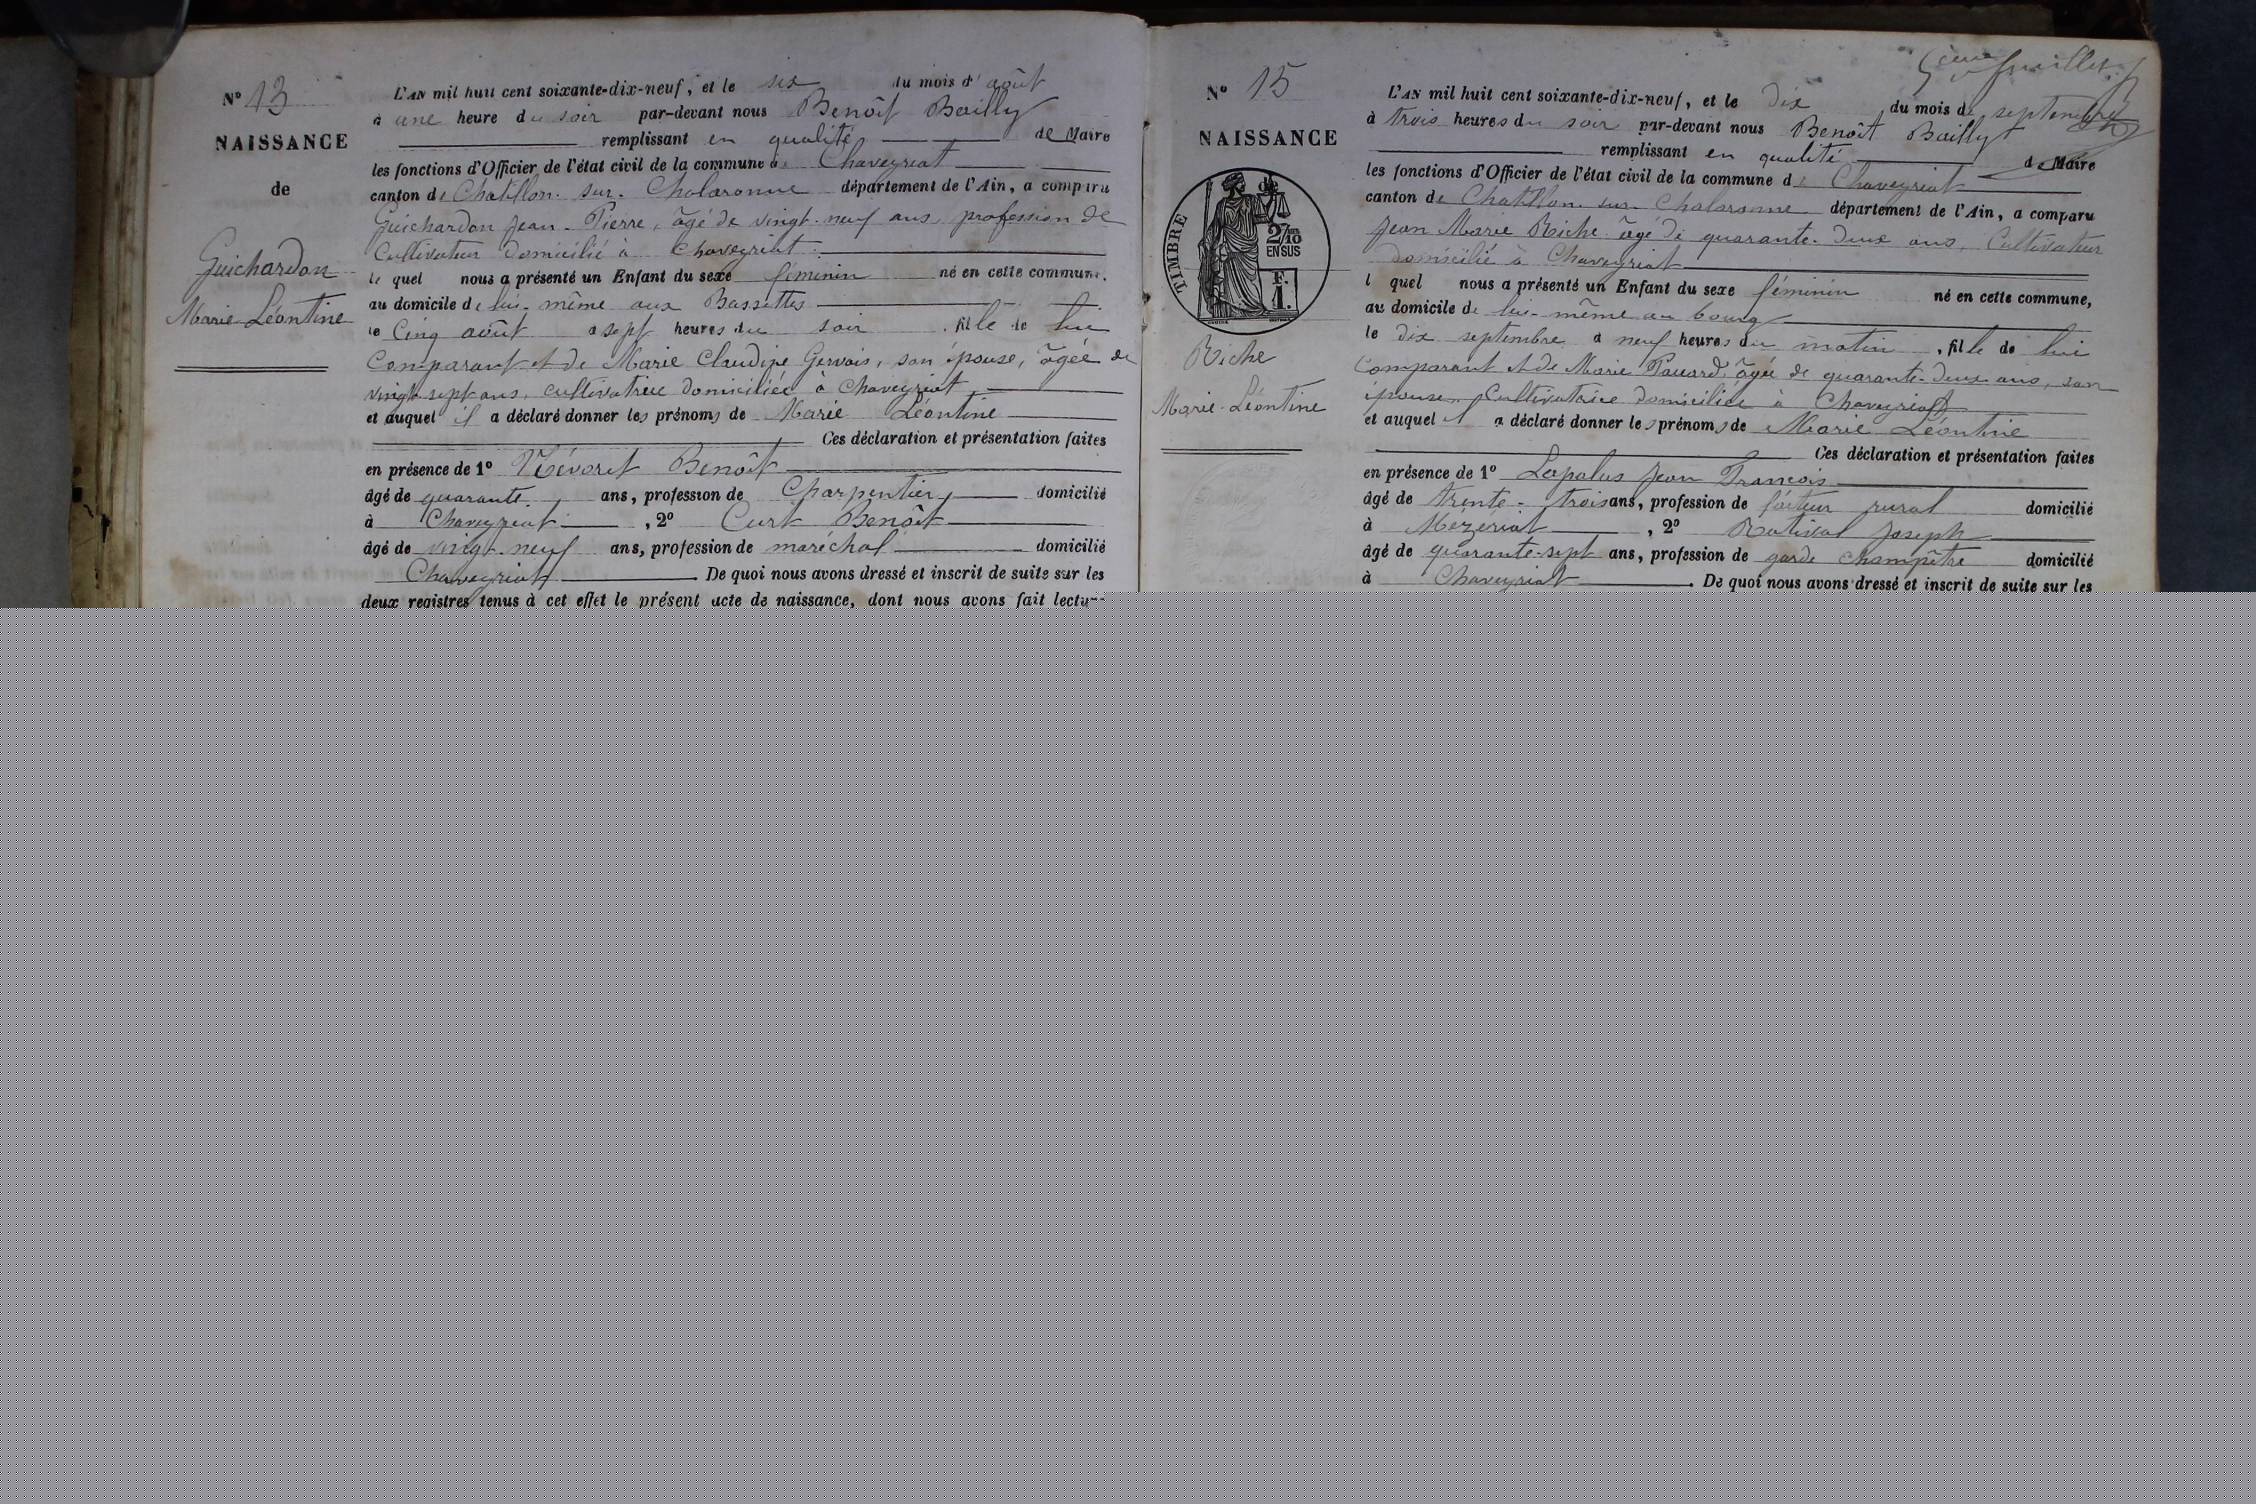 N° 13
NAISSANCE
de
Guichardon
Marie Léontine
L'AN mil huit cent soixante-dix-neuf, et le six du mois d'août
à une heure du soir par-devant nous Benoît Bailly
remplissant en qualité de Maire
les fonctions d'Officier de l'état civil de la commune de Chaveyriat
canton de Chatillon-sur-Chalaronne département de l'Ain, a comparu
Guichardon Jean-Pierre, âgé de vingt-neuf ans profession de
Cultivateur domicilié à Chaveyriat
le quel nous a présenté un Enfant du sexe féminin né en cette commune,
au domicile de lui-même aux Bassettes
le Cinq août à sept heures du soir, fille de lui
Comparant et de Marie Claudine Gervais, son épouse, âgée de
vingt-sept ans, cultivatrice domiciliée à Chaveyriat
et auquel il a déclaré donner les prénoms de Marie Léontine
Ces déclaration et présentation faites
en présence de 1° Benoît
âgé de quarante ans, profession de Charpentier domicilié
à Chaveyriat, 2° Curt Benoît
âgé de vingt-neuf ans, profession de maréchal domicilié
Chaveyriat. De quoi nous avons dressé et inscrit de suite sur les
deux registres tenus à cet effet le présent acte de naissance, dont nous avons fait lecture
5eme feuillet
N° 15
NAISSANCE
de
TIMBRE
2/10
EN SUS
F.
1.
Riche
Marie-Léontine
L'AN mil huit cent soixante-dix-neuf, et le dix du mois de septembre
à trois heures du soir par-devant nous Benoît Bailly
remplissant en qualité de Maire
les fonctions d'Officier de l'état civil de la commune de Chaveyriat
canton de Chatillon sur Chalaronne département de l'Ain, a comparu
Jean Marie Riche âgé de quarante-deux ans, Cultivateur
domicilié à Chaveyriat
l quel nous a présenté un Enfant du sexe féminin né en cette commune,
au domicile de lui-même au bourg
le dix septembre à neuf heures du matin, fille de lui
Comparant et de Marie âgée de quarante-deux ans, son
épouse, Cultivatrice domiciliée à Chaveyriat
et auquel il a déclaré donner les prénoms de Marie Léontine
Ces déclaration et présentation faites
en présence de 1° Lapalus Jean François
âgé de trente-trois ans, profession de facteur rural domicilié
à Mézériat, 2° Joseph
âgé de quarante-sept ans, profession de garde champêtre domicilié
à Chaveyriat. De quoi nous avons dressé et inscrit de suite sur les